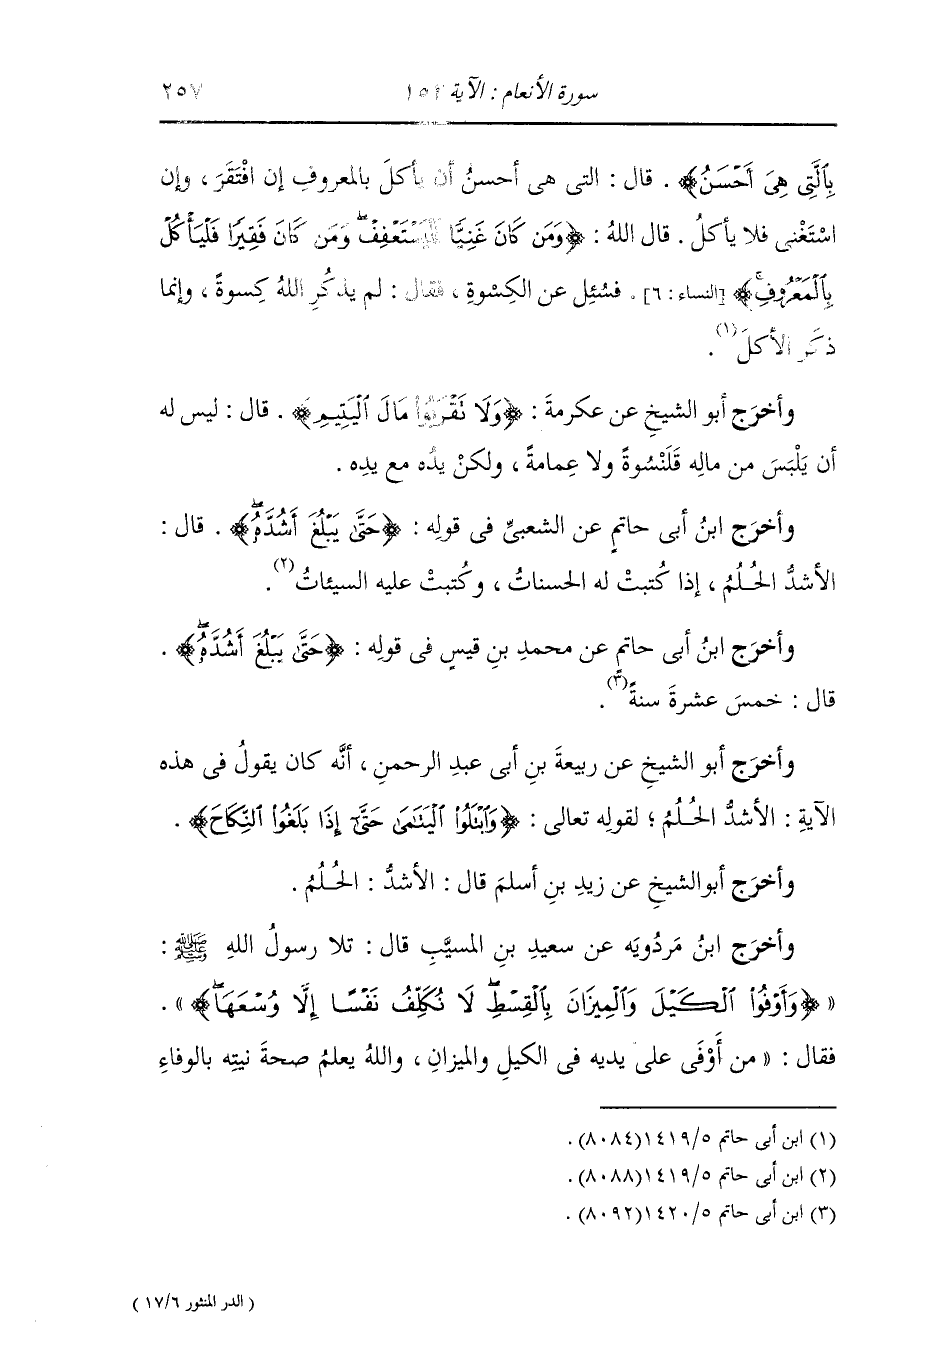 سورة الأنعام : الآية ١٥٢ ٢٥٧
بِٱلَّتِى هِىَ أَحْسَنُ﴾ . قال : التى هى أحسنُ أن يأكلَ بالمعروفِ إن افْتَقَرَ ، وإن
اسْتَغْنى فلا يأكلُ . قال اللهُ : ﴿وَمَن كَانَ غَنِيًّا فَلْيَسْتَعْفِفْ وَمَن كَانَ فَقِيرًا فَلْيَأْكُلْ
بِٱلْمَعْرُوفِ﴾ [النساء : ٦] . فسُئِل عن الكِسْوةِ ، فقال : لم يذكُرِ اللهُ كِسوةً ، وإنما
ذكَر الأكلَ(١) .
وأخرَج أبو الشيخِ عن عكرمةَ : ﴿وَلَا نَقْرَبُوا۟ مَالَ ٱلْيَتِيمِ﴾ . قال : ليس له
أن يَلْبَسَ من مالِه قَلَنْسُوةً ولا عِمامةً ، ولكنْ يدُه مع يدِه .
وأخرَج ابنُ أبى حاتمٍ عن الشعبىِّ فى قولِه : ﴿حَتَّىٰ يَبْلُغَ أَشُدَّهُۥ﴾ . قال :
الأشدُّ الحُلُمُ ، إذا كُتبتْ له الحسناتُ ، وكُتبتْ عليه السيئاتُ(٢) .
وأخرَج ابنُ أبى حاتمٍ عن محمدِ بنِ قيسٍ فى قولِه : ﴿حَتَّىٰ يَبْلُغَ أَشُدَّهُۥ﴾ .
قال : خمسَ عشرةَ سنةً(٣) .
وأخرَج أبو الشيخِ عن ربيعةَ بنِ أبى عبدِ الرحمنِ ، أنَّه كان يقولُ فى هذه
الآيةِ : الأشدُّ الحُلُمُ ؛ لقولِه تعالى : ﴿وَٱبْتَلُوا۟ ٱلْيَتَٰمَىٰ حَتَّىٰٓ إِذَا بَلَغُوا۟ ٱلنِّكَاحَ﴾ .
وأخرَج أبوالشيخِ عن زيدِ بنِ أسلمَ قال : الأشدُّ : الحُلُمُ .
وأخرَج ابنُ مَردُويَه عن سعيدِ بنِ المسيَّبِ قال : تلا رسولُ اللهِ ﷺ :
« ﴿وَأَوْفُوا۟ ٱلْكَيْلَ وَٱلْمِيزَانَ بِٱلْقِسْطِ لَا نُكَلِّفُ نَفْسًا إِلَّا وُسْعَهَا﴾ » .
فقال : « من أَوْفَى على يديه فى الكيلِ والميزانِ ، واللهُ يعلمُ صحةَ نيتِه بالوفاءِ
(١) ابن أبى حاتم ١٤١٩/٥(٨٠٨٤) .
(٢) ابن أبى حاتم ١٤١٩/٥(٨٠٨٨) .
(٣) ابن أبى حاتم ١٤٢٠/٥(٨٠٩٢) .
( الدر المنثور ١٧/٦ )